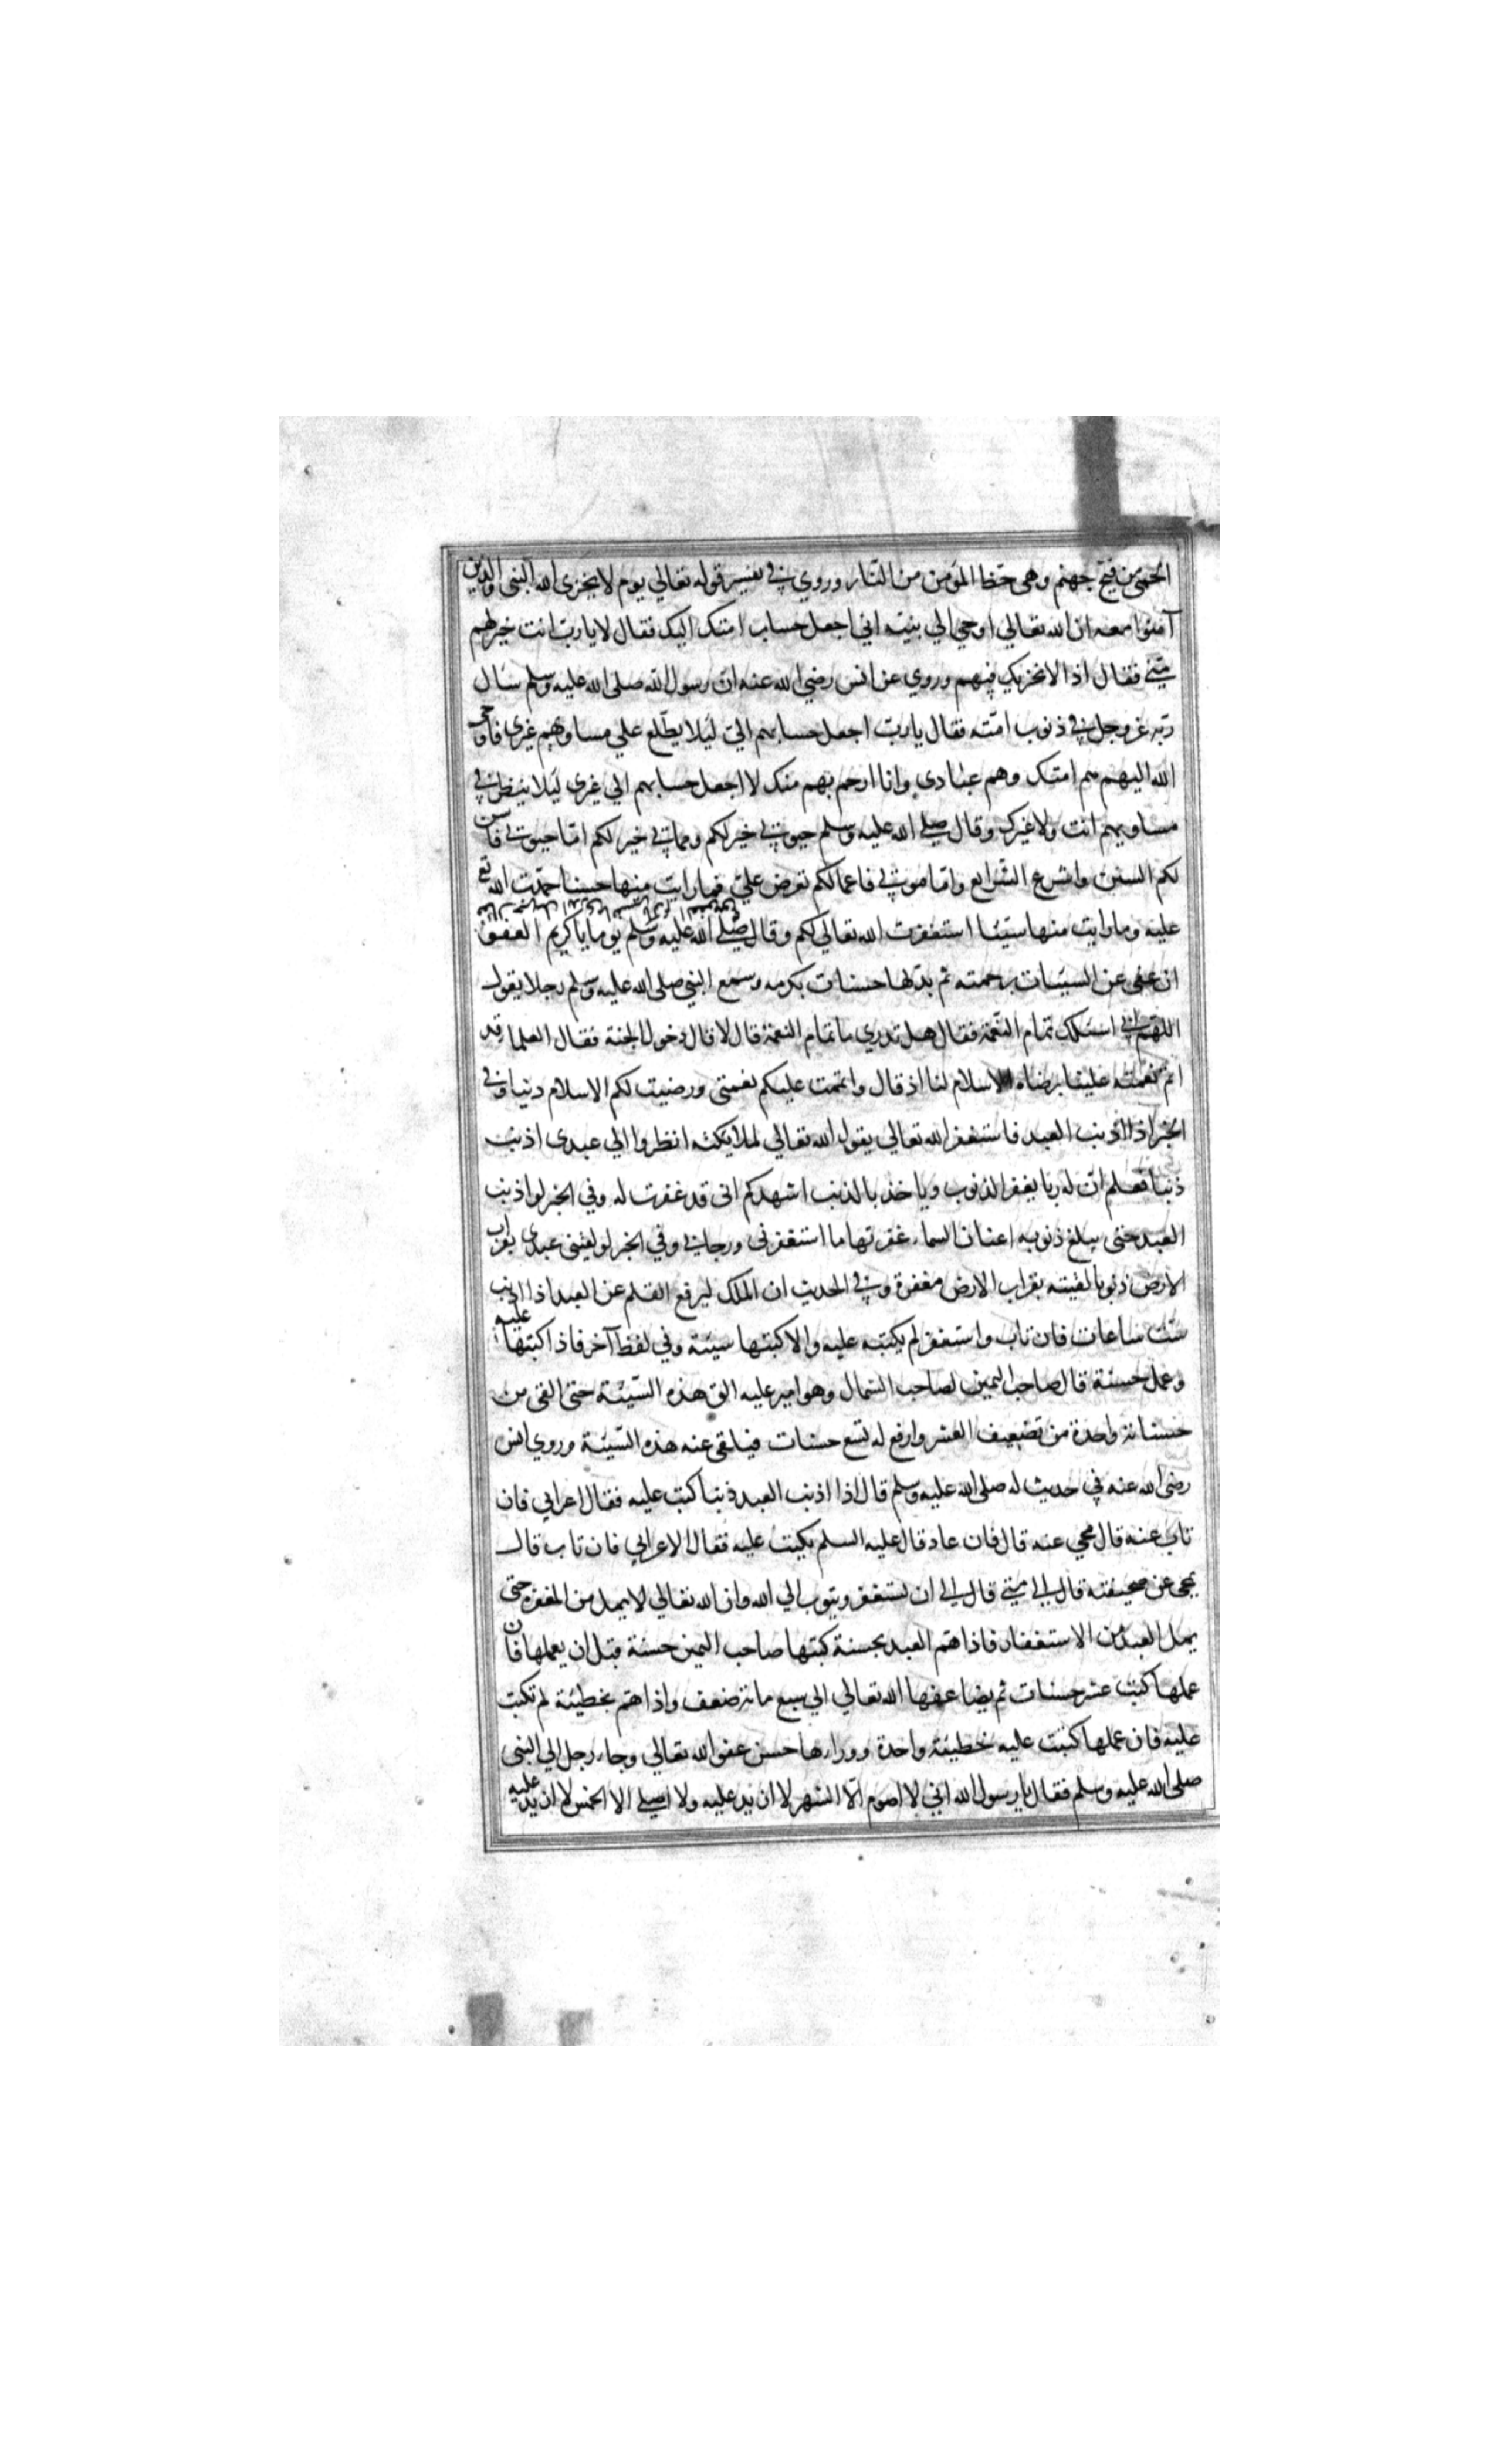 الحمى من فيح جهنم وهى حظ المؤمن من النار وروي في تفسير قوله تعالي يوم لا يخزى الله النبى والذين
آمنوا معه ان الله تعالي اوحي الي نبيه اني اجعل حساب امتك اليك فقال لا يا رب انت خير لهم
منى فقال اذا لا نخزيك فيهم وروي عن انس رضي الله عنه ان رسول الله صلى الله عليه وسلم سال
ربه عز وجل في ذنوب امته فقال يا رب اجعل حسابهم الي ليلا يطلع علي مساويهم غيرى فاوحى
الله اليه هم امتك وهم عبادى وانا ارحم بهم منك لا اجعل حسابهم الي غيرى ليلا ينظر في
مساويهم انت ولا غيرك وقال صلى الله عليه وسلم حيوتي خير لكم ومماتي خير لكم اما حيوتي فاسن
لكم السنن واشرع الشرايع واما موتي فاعمالكم تعرض علي فما رايت منها حسنا حمدت الله
عليه وما رايت منها سيئا استغفرت الله تعالي لكم وقال صلى الله عليه وسلم يوما يا كريم العفو
ان عفى عن السيئات برحمته ثم بدلها حسنات بكرمه وسمع النبي صلى الله عليه وسلم رجلا يقول
اللهم اني اسئلك تمام النعمة فقال هل تدري ما تمام النعمة قال لا قال دخول الجنة فقال العلما قد
اتم نعمته علينا برضاه الاسلام لنا اذ قال واتممت عليكم نعمتى ورضيت لكم الاسلام دينا وفي
الخبر اذا اذنب العبد فاستغفر الله تعالي يقول الله تعالي لملائكته انظروا الي عبدى اذنب
ذنبا فعلم ان له ربا يغفر الذنوب وياخذ بالذنب اشهدكم انى قد غفرت له وفي الخبر لو اذنب
العبد حتى يبلغ ذنوبه اعنان السماء غفرتها ما استغفرنى ورجاني وفي الخبر لو لقينى عبدى بقراب
الارض ذنوبا لقيته بقراب الارض مغفرة وفي الحديث ان الملك ليرفع القلم عن العبد اذا اذنب
ست ساعات فان تاب واستغفر لم يكتبه عليه والا كتبها سيئة وفي لفظ آخر فاذا كتبها عليه
وعمل حسنة قال صاحب اليمين لصاحب الشمال وهو امير عليه الق هذه السيئة حتى القى من
حسناته واحدة من تضعيف العشر وارفع له تسع حسنات فيلقى عنه هذه السيئة وروي انس
رضى الله عنه في حديث له صلى الله عليه وسلم قال اذا اذنب العبد ذنبا كتب عليه فقال اعرابي فان
تاب عنه قال محي عنه قال فان عاد قال عليه السلم يكتب عليه فقال الاعرابي فان تاب قال
يمحى عن صحيفته قال الي متي قال الي ان يستغفر ويتوب الي الله وان الله تعالي لا يمل من المغفرة حتى
يمل العبد من الاستغفار فاذا هم العبد بحسنة كتبها صاحب اليمين حسنة قبل ان يعملها فان
عملها كتبت عشر حسنات ثم يضاعفها الله تعالي الي سبع مائة ضعف واذا هم بخطيئة لم تكتب
عليه فان عملها كتبت عليه خطيئة واحدة ووراءها حسن عفو الله تعالي وجاء رجل الي النبى
صلى الله عليه وسلم فقال يا رسول الله اني لا اصوم الا الشهر لا ازيد عليه ولا اصلي الا الخمس لا ازيد عليه